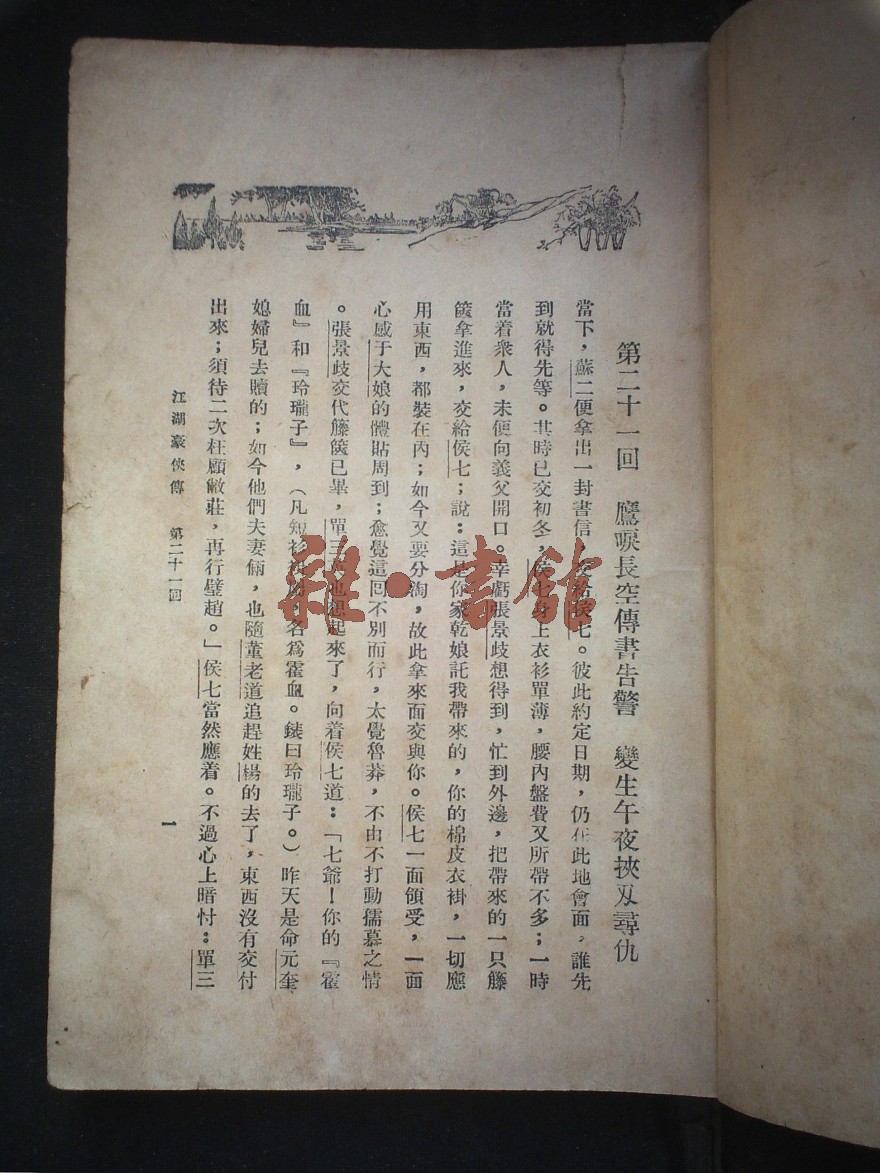 第二十一回　鷹唳長空傳書告警　變生午夜挾刄尋仇
當下，蘇二便拿出一封書信，交給侯七。彼此約定日期，仍在此地會面，誰先
到就得先等。其時已交初冬，侯七身上衣衫單薄，腰內盤費又所帶不多；一時
當着衆人，未便向義父開口。幸虧張景歧想得到，忙到外邊，把帶來的一只籐
篋拿進來，交給侯七；說：這是你家乾娘託我帶來的，你的棉皮衣褂，一切應
用東西，都裝在內；如今又要分淘，故此拿來面交與你。侯七一面領受，一面
心感于大娘的體貼周到；愈覺這囘不別而行，太覺魯莽，不由不打動孺慕之情
。張景歧交代籐篋已畢，單三也想起來了，向着侯七道：「七爺！你的『霍
血』和『玲瓏子』，（凡短衫，名爲霍血。錶曰玲瓏子。）昨天是命元奎
媳婦兒去贖的；如今他們夫妻倆，也隨董老道追趕姓楊的去了，東西沒有交付
出來；須待二次枉顧敝莊，再行璧趙。」侯七當然應着。不過心上暗忖：單三
江湖豪俠傳　第二十一回
一
雜·書館